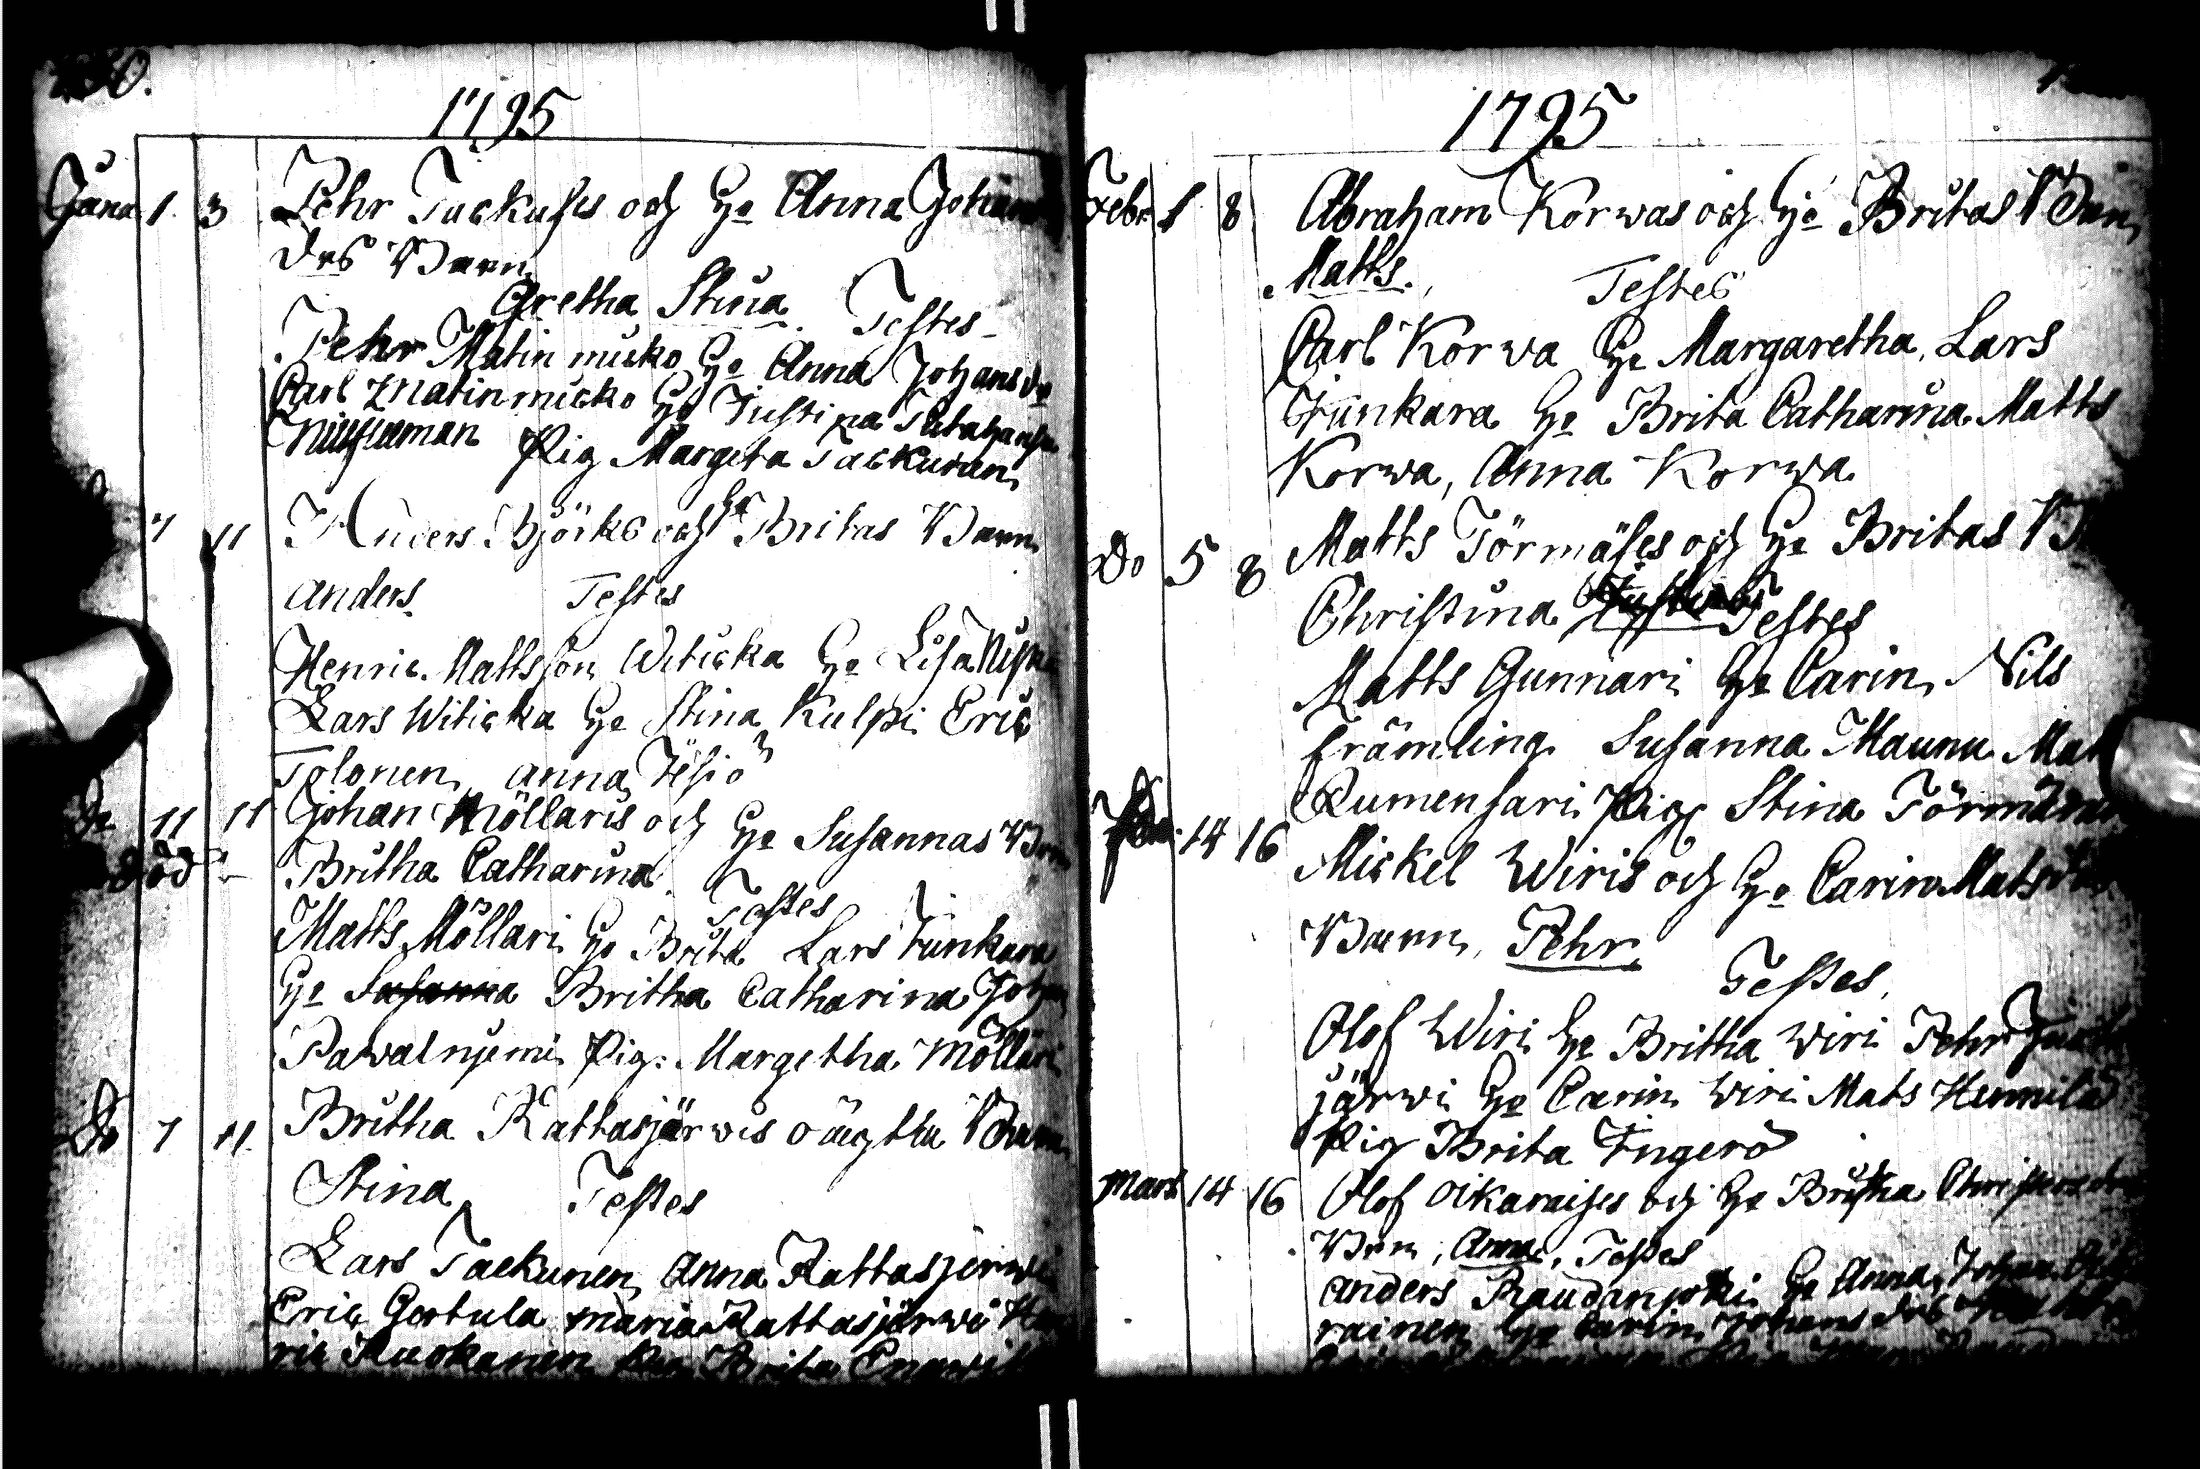 1795
Janu 1. 3 Pehr Tuckuses och Hu Anna Johans
drs Barn
Gretha Stina. Testes
Pehr Matinmicko Hu Anna Johansdr
Carl Matinmicko Hu Justina
Pig Margeta Tackunan
7 11 Anders Björks och Hu Britas Barn
Anders. Testes
Henric Mattsson Witicka Hu Lisa
Lars Witicka Hu Stina Kulpi Eric
Tolonen, Anna
Do 11 11 Johan Möllaris och Hu Susannas Brn
död Britha Catharina. Testes
Matts Möllari Hu Brita Lars Funkara
Hu Susanna Britha Catharina Joha
Pawalnjemi Pig: Margetha Möllari
Do 7 11. Britha Rattasjärwis oägtta Barn
Stina Testes
Lars Tackunen Anna Rattasjerwi
Eric Gertula Maria Rattasjärwi Hen
ric Ruokanen Pig Brita
1795
Febr 1 8 Abraham Korwas och Hu Britas Barn
Matts. Testes
Carl Korwa Hu Margaretha, Lars
Funkara Hu Brita Catharina Matts
Korwa, Anna Korwa
Do 5 8 Matts Törmäses och Hu Britas B
Christina Testes
Matts Gunnari Hu Carin, Nils
Främling Susanna Maunu Mat
Rumensari Pig Stina
14 16 Mickel Wiris och Hu Carin Mats
Barn, Pehr. Testes,
Olof Wiri Hu Britha Wiri Pehr
järwi Hu Carin Wiri Mats Hennila
Pig Brita Fingerö
Mars 14 16 Olof Oikaraises och Hu Britha
Brn, Anna, Testes
Anders Raudanjoki Hu Anna, Johan
rainen Hu Carin Johans